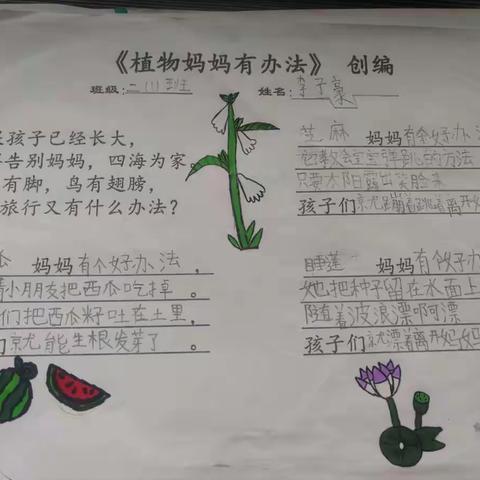 《植物妈妈有办法》 创编
班级: 二(1)班 姓名: 李子豪
孩子已经长大，
告别妈妈，四海为家
有脚，鸟有翅膀，
旅行又有什么办法？
芝麻 妈妈有个好办法
只要太阳露出笑脸来
孩子们就蹦着跳着离开妈
妈妈有个好办法，
小朋友把西瓜吃掉。
们把西瓜籽吐在土里，
们就能生根发芽了。
睡莲 妈妈有个好办
她把种子留在水面上
随着波浪漂啊漂
孩子们就漂着离开妈妈